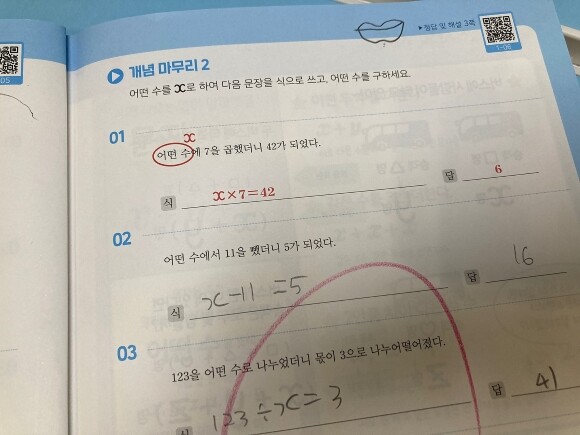 ▶정답 및 해설 3쪽
1-06
05
개념 마무리 2
어떤 수를 x로 하여 다음 문장을 식으로 쓰고, 어떤 수를 구하세요.
01
x
어떤 수에 7을 곱했더니 42가 되었다.
식 x×7=42 답 6
02
어떤 수에서 11을 뺐더니 5가 되었다.
식 x-11=5 답 16
03
123을 어떤 수로 나누었더니 몫이 3으로 나누어떨어졌다.
식 123÷x=3 답 41